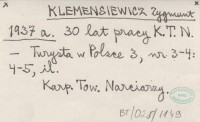 KLEMENSIEWICZ Zygmunt
1937 a. 30 lat pracy K.T.N.
— Turysta w Polsce 3, nr 3-4:
4-5, il.
Karp. Tow. Narciarzy.
BT/025/1149